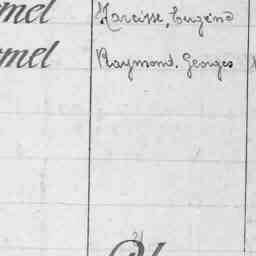 mel Narcisse, Eugène
mel Raymond. Georges